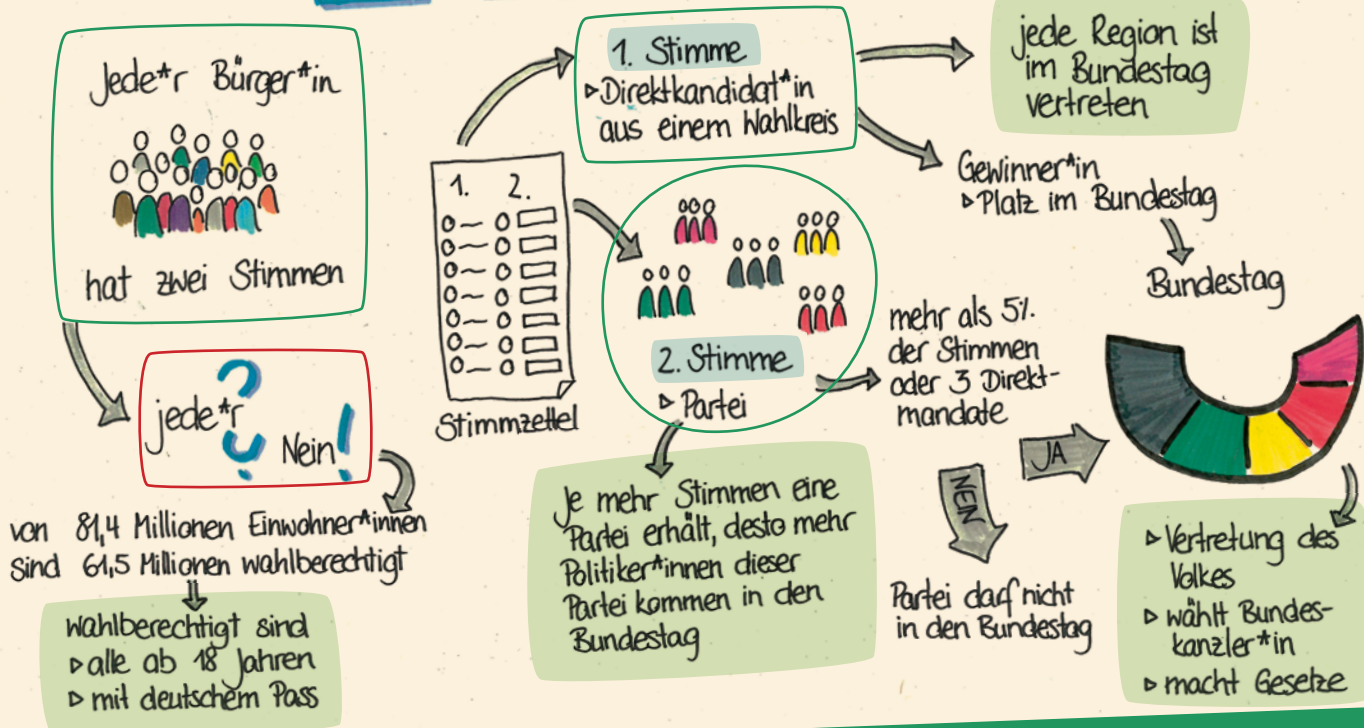 Jede*r Bürger*in
hat zwei Stimmen
jede*r
?
?
Nein!
von 81,4 Millionen Einwohner*innen
sind 61,5 Millionen wahlberechtigt
wahlberechtigt sind
▹ alle ab 18 Jahren
▹ mit deutschem Pass
1. 2.
Stimmzettel
1. Stimme
▹ Direktkandidat*in
aus einem Wahlkreis
jede Region ist
im Bundestag
vertreten
Gewinner*in
▹ Platz im Bundestag
Bundestag
2. Stimme
▹ Partei
Je mehr Stimmen eine
Partei erhält, desto mehr
Politiker*innen dieser
Partei kommen in den
Bundestag
mehr als 5%
der Stimmen
oder 3 Direkt-
mandate
JA
NEIN
Partei darf nicht
in den Bundestag
▹ Vertretung des
Volkes
▹ wählt Bundes-
kanzler*in
▹ macht Gesetze